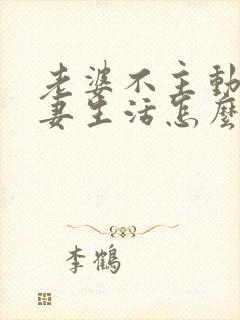 老婆不主動
妻生活怎麼
李鶴